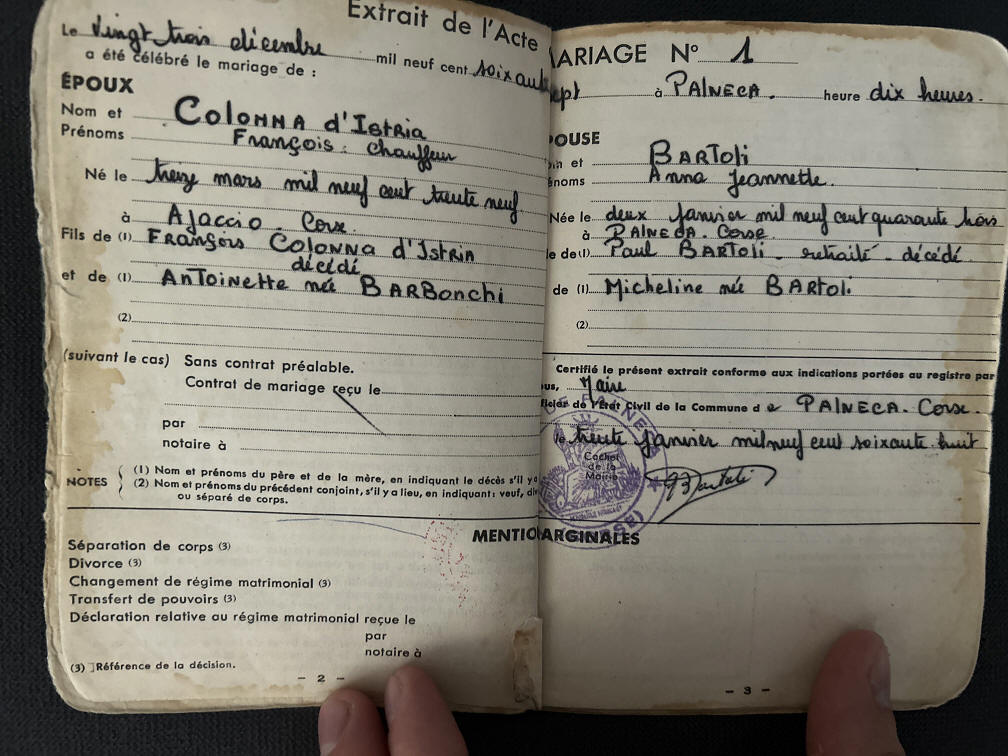 Extrait de l'Acte
Le vingt trois décembre mil neuf cent soixante
a été célébré le mariage de :
ÉPOUX
Nom et Colonna d'Istria
Prénoms François : chauffeur
Né le treize mars mil neuf cent trente neuf
à Ajaccio - Corse
Fils de (1) François Colonna d'Istria
décédé
et de (1) Antoinette née Barbonchi
(2)
(suivant le cas) Sans contrat préalable.
Contrat de mariage reçu le
par
notaire à
NOTES
(1) Nom et prénoms du père et de la mère, en indiquant le décès s'il y a
(2) Nom et prénoms du précédent conjoint, s'il y a lieu, en indiquant : veuf, di
ou séparé de corps.
MENTIO
Séparation de corps (3)
Divorce (3)
Changement de régime matrimonial (3)
Transfert de pouvoirs (3)
Déclaration relative au régime matrimonial reçue le
par
notaire à
(3) Référence de la décision.
- 2 -
MARIAGE N° 1
sept à PALNECA. heure dix heures.
POUSE
et BARToli
énoms Anna Jeannette.
Née le deux janvier mil neuf cent quarante trois
à PALNECA. Corse
le de (1) Paul BARToli - retraité - décédé
de (1) Micheline née BARToli
(2)
Certifié le présent extrait conforme aux indications portées au registre par
ous, Maire
ficier de l'État Civil de la Commune d e PALNECA. Corse.
le trente janvier mil neuf cent soixante huit
Cachet
de la
Mairie
ARGINALES
- 3 -